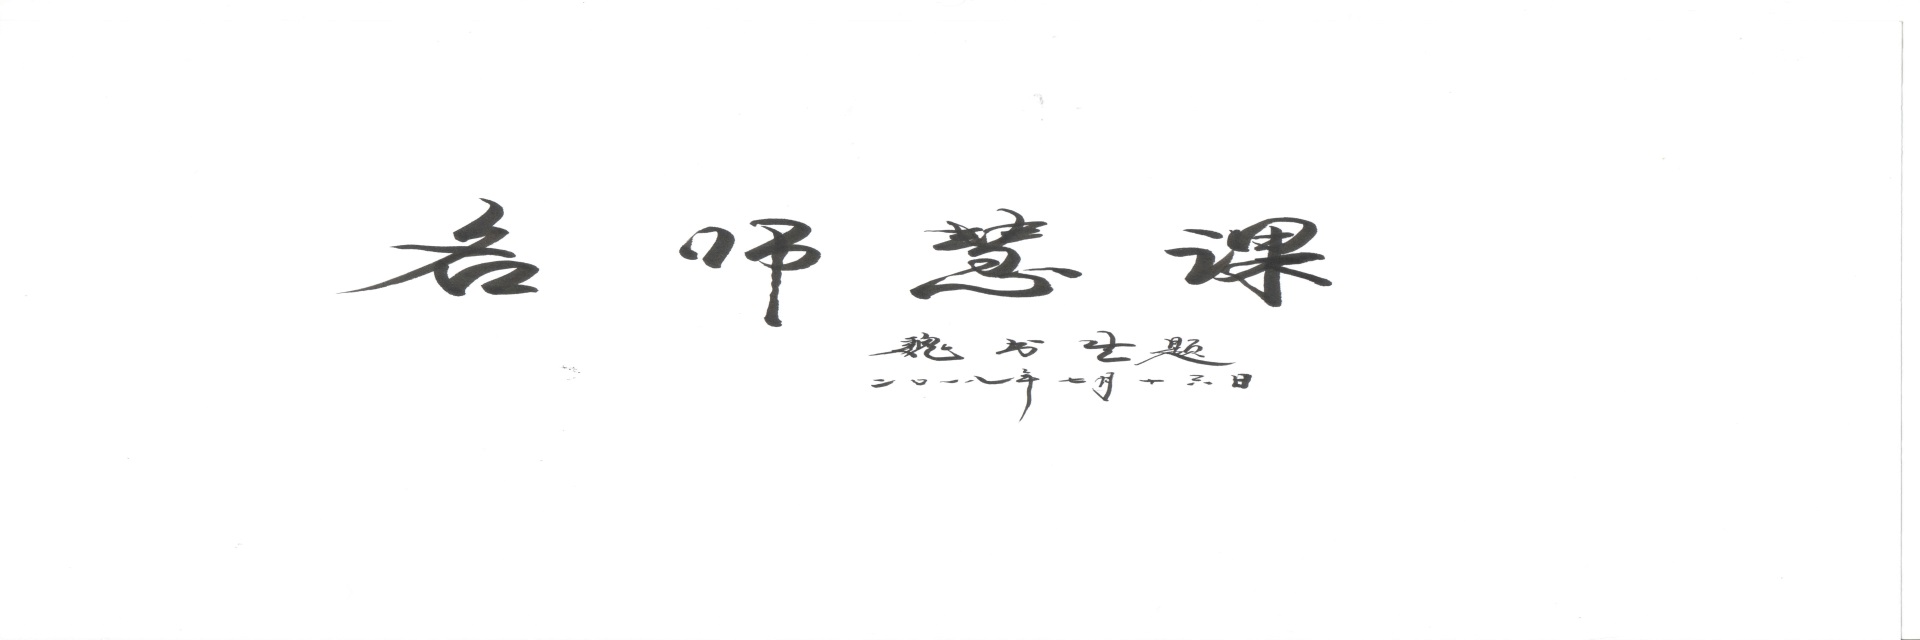 名师慧课
魏书生题
二〇一八年七月十六日